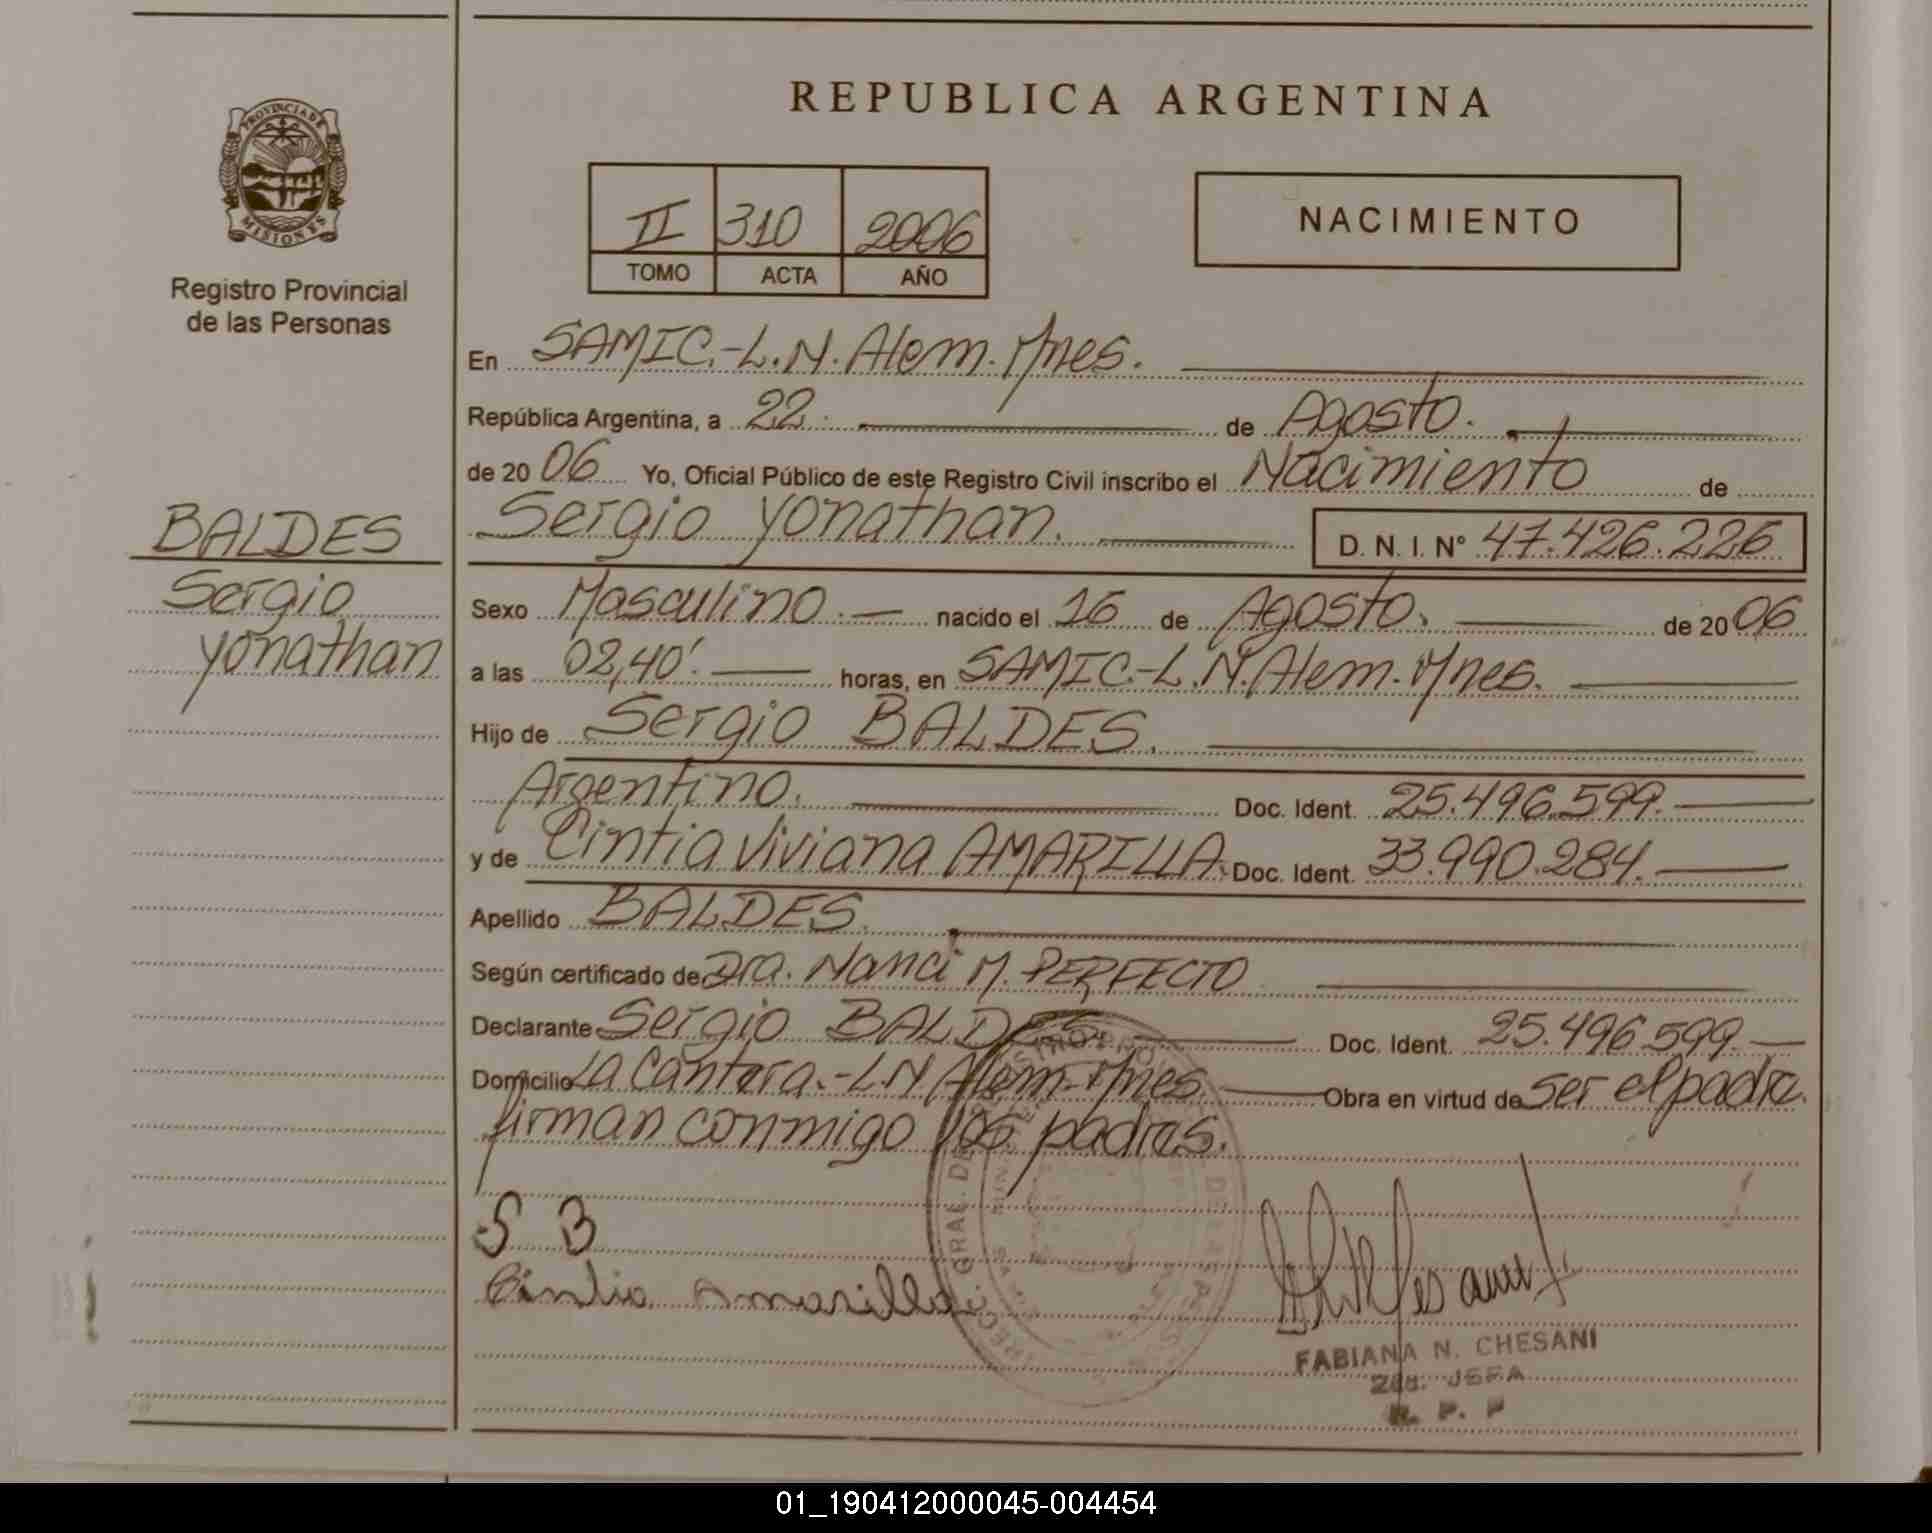 REPUBLICA ARGENTINA
PROVINCIA DE MISIONES
Registro Provincial
de las Personas
II 310 2006
TOMO ACTA AÑO
NACIMIENTO
En SAMIC.-L.N. Alem. Mnes.
República Argentina, a 22. de Agosto.
de 2006 Yo, Oficial Público de este Registro Civil inscribo el Nacimiento de
Sergio Yonathan. D. N. I. Nº 47.426.226
BALDES
Sergio
Yonathan
Sexo Masculino. nacido el 16 de Agosto. de 2006
a las 02,40'. horas, en SAMIC.-L.N. Alem. Mnes.
Hijo de Sergio BALDES.
Argentino. Doc. Ident. 25.496.599.
y de Cintia Viviana AMARILLA. Doc. Ident. 33.990.284.
Apellido BALDES.
Según certificado de Dra. Nanci M. PERFECTO
Declarante Sergio BALDES. Doc. Ident. 25.496.599.
Domicilio La Cantera.-LN Alem-Mnes. Obra en virtud de ser el padre.
firman conmigo los padres.
S B
Cintia Amarilla
FABIANA N. CHESANI
2da. JEFA
R. P. P
01_190412000045-004454